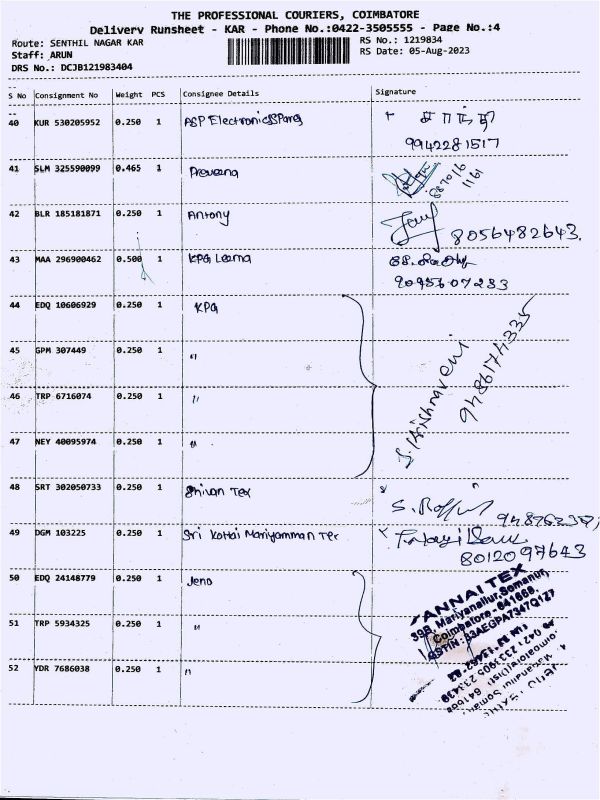 THE PROFESSIONAL COURIERS, COIMBATORE
Delivery Runsheet - KAR - Phone No.:0422-3505555 - Page No.:4
Route: SENTHIL NAGAR KAR RS No.: 1219834
Staff: ARUN RS Date: 05-Aug-2023
DRS No.: DCJB121983404
S No Consignment No Weight PCS Consignee Details Signature
40 KUR 530205952 0.250 1 ASP Electronics
9942281517
41 SLM 325590099 0.465 1 Praveena
887016
1161
42 BLR 185181871 0.250 1 Antony 8056482643.
43 MAA 296900462 0.500 1 KPG Leama
9095607283
44 EDQ 10606929 0.250 1 KPG
45 GPM 307449 0.250 1 "
S. Krishnaveni
9486174335
46 TRP 6716074 0.250 1 "
47 NEY 40095974 0.250 1 "
48 SRT 302050733 0.250 1 Shivan Tex
49 DGM 103225 0.250 1 Sri Kottai Mariyamman Tex
8012097643
50 EDQ 24148779 0.250 1 Jeno
ANNAI TEX
39B, Mariyanallur, Somanur,
Coimbatore - 641668.
GSTIN: 33AEGPA7347Q1Z7
51 TRP 5934325 0.250 1 "
52 YDR 7686038 0.250 1 "